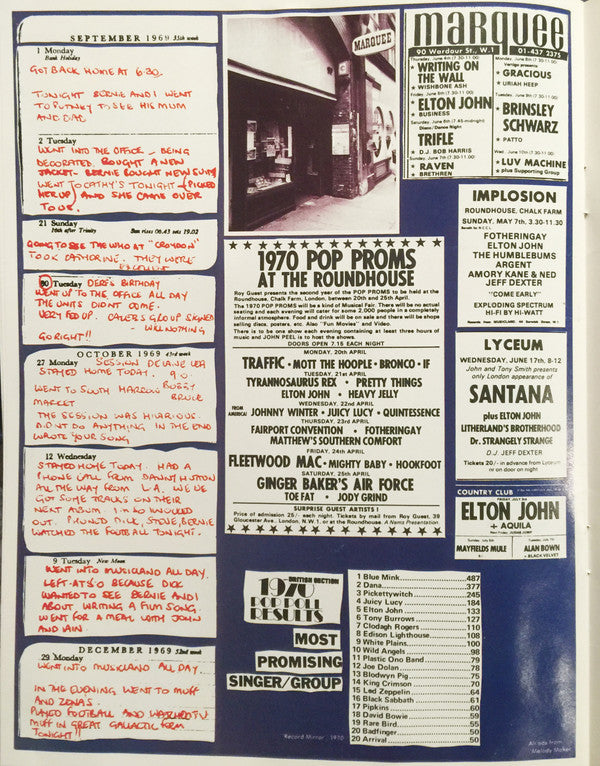 SEPTEMBER 1969 35th week
1 Monday
Bank Holiday
GOT BACK HOME AT 6.30.
TONIGHT BERNIE AND I WENT
TO PUTNEY TO SEE HIS MUM
AND DAD
2 Tuesday
WENT INTO THE OFFICE - BEING
DECORATED. BOUGHT A NEW
JACKET - BERNIE BOUGHT NEW SUIT
WENT TO CATHY'S TONIGHT - (PICKED
HER UP) AND SHE CAME OVER
TO US.
21 Sunday
16th after Trinity Sun rises 06.43 sets 19.02
GOING TO SEE THE WHO AT "CROYDON"
TOOK CATHERINE. THEY WERE
EXCELLENT
30 Tuesday DEREF'S BIRTHDAY
WENT UP TO THE OFFICE ALL DAY
THE UNITS DIDN'T COME.
VERY FED UP. CALEB'S GROUP SIGNED
- WELL NOTHING
GO RIGHT!!
OCTOBER 1969 43rd week
27 Monday SESSION DE LANE LEA
STAYED HOME TODAY. 9.0
WENT TO SOUTH HARROW BUGSY
MARKET BRUCE
THE SESSION WAS HILARIOUS.
DIDNT DO ANYTHING IN THE END
WROTE YOUR SONG
12 Wednesday
STAYED HOME TODAY. HAD A
PHONE CALL FROM DANNY HUTTON
ALL THE WAY FROM L.A. WE'VE
GOT SOME TRACKS ON THEIR
NEXT ALBUM I'M SO KNOCKED
OUT. PHONED DICK, STEVE, BERNIE
WATCHED THE FOOTBALL TONIGHT.
9 Tuesday New Moon
WENT INTO MUSICLAND ALL DAY.
LEFT AT 5.0 BECAUSE DICK
WANTED TO SEE BERNIE AND I
ABOUT WRITING A FILM SONG.
WENT FOR A MEAL WITH JOHN
AND IAIN.
DECEMBER 1969 52nd week
29 Monday
WENT INTO MUSICLAND ALL DAY.
IN THE EVENING WENT TO MUFF
AND ZENA'S.
PLAYED FOOTBALL AND WATCHED TV
MUFF IN GREAT GALACTIC FORM
TONIGHT!!
MARQUEE
1970 POP PROMS
AT THE ROUNDHOUSE
Roy Guest presents the second year of the POP PROMS to be held at the
Roundhouse, Chalk Farm, London, between 20th and 25th April.
The 1970 POP PROMS will be a Musical Fair. There will be no actual
seating and each evening will cater for some 2,000 people in a completely
informal atmosphere. Food and drink will be on sale and there will be shops
selling discs, posters, etc. Also "Fun Movies" and Video.
There is to be one show each evening containing at least three hours of
music and JOHN PEEL is to host the shows.
DOORS OPEN 7.15 EACH NIGHT
MONDAY, 20th APRIL
TRAFFIC · MOTT THE HOOPLE · BRONCO · IF
TUESDAY, 21st APRIL
TYRANNOSAURUS REX · PRETTY THINGS
ELTON JOHN · HEAVY JELLY
WEDNESDAY, 22nd APRIL
FROM AMERICA! JOHNNY WINTER · JUICY LUCY · QUINTESSENCE
THURSDAY, 23rd APRIL
FAIRPORT CONVENTION · FOTHERINGAY
MATTHEW'S SOUTHERN COMFORT
FRIDAY, 24th APRIL
FLEETWOOD MAC · MIGHTY BABY · HOOKFOOT
SATURDAY, 25th APRIL
GINGER BAKER'S AIR FORCE
TOE FAT · JODY GRIND
SURPRISE GUEST ARTISTS!
Price of admission 25/- each night. Tickets by mail from Roy Guest, 39
Gloucester Ave., London, N.W.1. or at the Roundhouse. A Nems Presentation
BRITISH SECTION
1970
POP POLL
RESULTS
MOST
PROMISING
SINGER/GROUP
1 Blue Mink 487
2 Dana 377
3 Pickettywitch 245
4 Juicy Lucy 184
5 Elton John 133
6 Tony Burrows 127
7 Clodagh Rodgers 110
8 Edison Lighthouse 108
9 White Plains 100
10 Wild Angels 98
11 Plastic Ono Band 79
12 Joe Dolan 78
13 Blodwyn Pig 75
14 King Crimson 70
15 Led Zeppelin 64
16 Black Sabbath 61
17 Pipkins 60
18 David Bowie 59
19 Rare Bird 55
20 Badfinger 50
20 Arrival 50
'Record Mirror', 1970
marquee
90 Wardour St., W.1 01-437 2375
Thursday, June 4th (7.30-11.00)
WRITING ON
THE WALL
WISHBONE ASH
Friday, June 5th (7.30-11.00)
ELTON JOHN
BUSINESS
Saturday, June 6th (7.45-midnight)
Disco/Dance Night
TRIFLE
D.J. BOB HARRIS
Sunday, June 7th (7.30-11.00)
RAVEN
BRETHREN
Monday, June 8th (7.30-11.00)
Vertigo presents
GRACIOUS
URIAH HEEP
BRINSLEY
SCHWARZ
PATTO
Wed. June 10th (7.30-11.00)
LUV MACHINE
plus Supporting Group
IMPLOSION
ROUNDHOUSE, CHALK FARM
SUNDAY, MAY 7th, 3.30-11.30
FOTHERINGAY
ELTON JOHN
THE HUMBLEBUMS
ARGENT
AMORY KANE & NED
JEFF DEXTER
"COME EARLY"
EXPLODING SPECTRUM
HI-FI BY HI-WATT
LYCEUM
WEDNESDAY, JUNE 17th, 8-12
John and Tony Smith present
only London appearance of
SANTANA
plus ELTON JOHN
LITHERLAND'S BROTHERHOOD
Dr. STRANGELY STRANGE
D.J. JEFF DEXTER
Tickets 20/- in advance from Lyceum
or on door on night
COUNTRY CLUB
ELTON JOHN
+ AQUILA
MAYFIELDS MULE
ALAN BOWN
+ BLACK VELVET
All ads from
'Melody Maker'